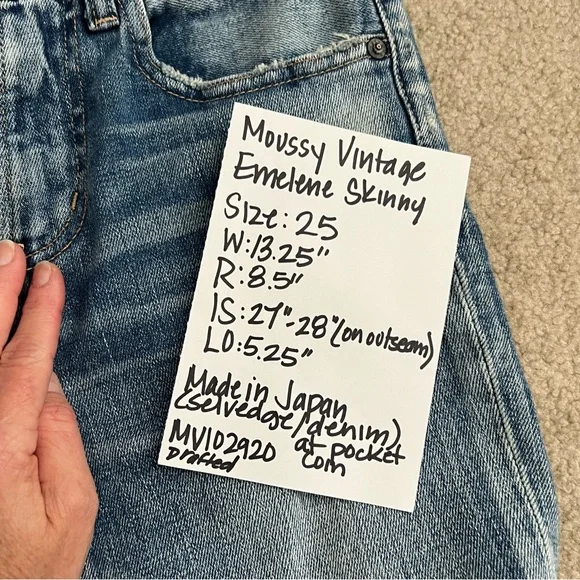 Moussy Vintage
Emelene Skinny
Size: 25
W:13.25"
R:8.5"
IS:27"-28"(on outseam)
LO:5.25"
Made in Japan
(selvedge/denim)
at pocket
MV102920
Drafted
com